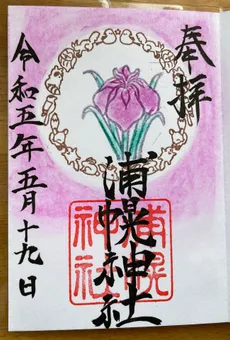 奉拝
浦幌神社
浦幌
神社
令和五年五月十九日